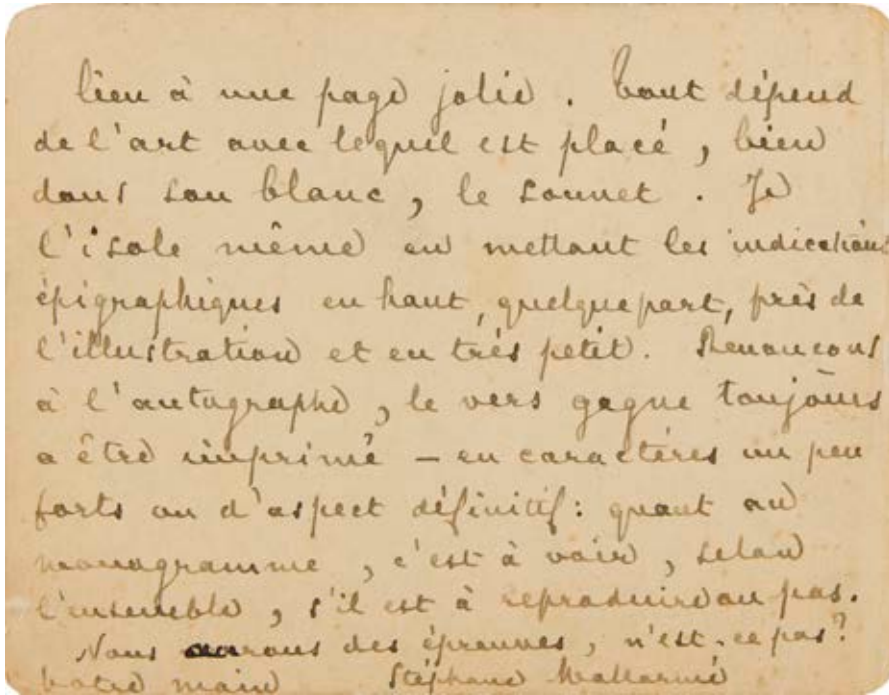 lieu à une page jolie. Tout dépend
de l'art avec lequel est placé, bien
dans son blanc, le sonnet. Je
l'isole même en mettant les indications
épigraphiques en haut, quelque part, près de
l'illustration et en très petit. Renonçons
à l'autographe, le vers gagne toujours
a être imprimé – en caractères un peu
forts ou d'aspect définitif: quant au
monogramme, c'est à voir, selon
l'ensemble, s'il est à reproduire ou pas.
Nous aurons des épreuves, n'est-ce pas?
Votre main Stéphane Mallarmé